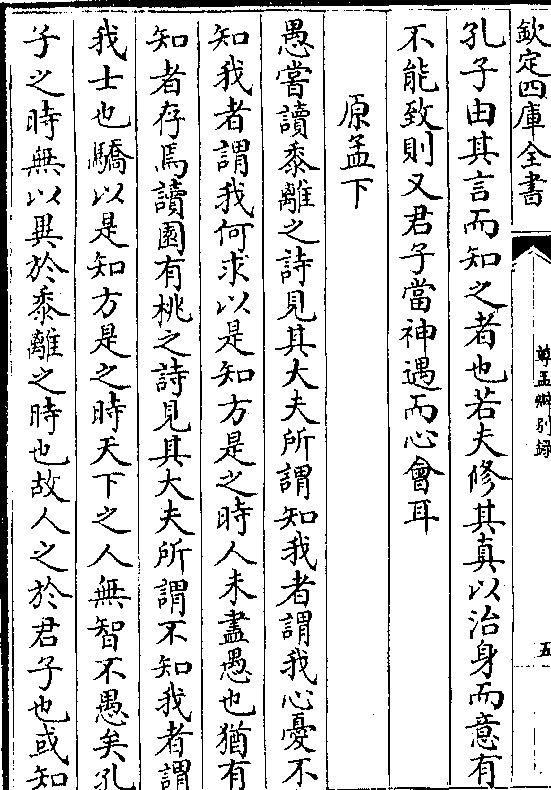 欽定四庫全書
尊孟辨別録
五
孔子由其言而知之者也若夫修其真以治身而意有
不能致則又君子當神遇而心會耳
原孟下
愚嘗讀黍離之詩見其大夫所謂知我者謂我心憂不
知我者謂我何求以是知方是之時人未盡愚也猶有
知者存焉讀園有桃之詩見其大夫所謂不知我者謂
我士也驕以是知方是之時天下之人無智不愚矣孔
子之時無以異於黍離之時也故人之於君子也或知